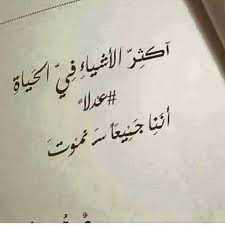 آكثِرّ الأشياءِ فِيّ الحياةِ
#عدلاً
أننِا جَميِعَاً سَ نمُوْتَ